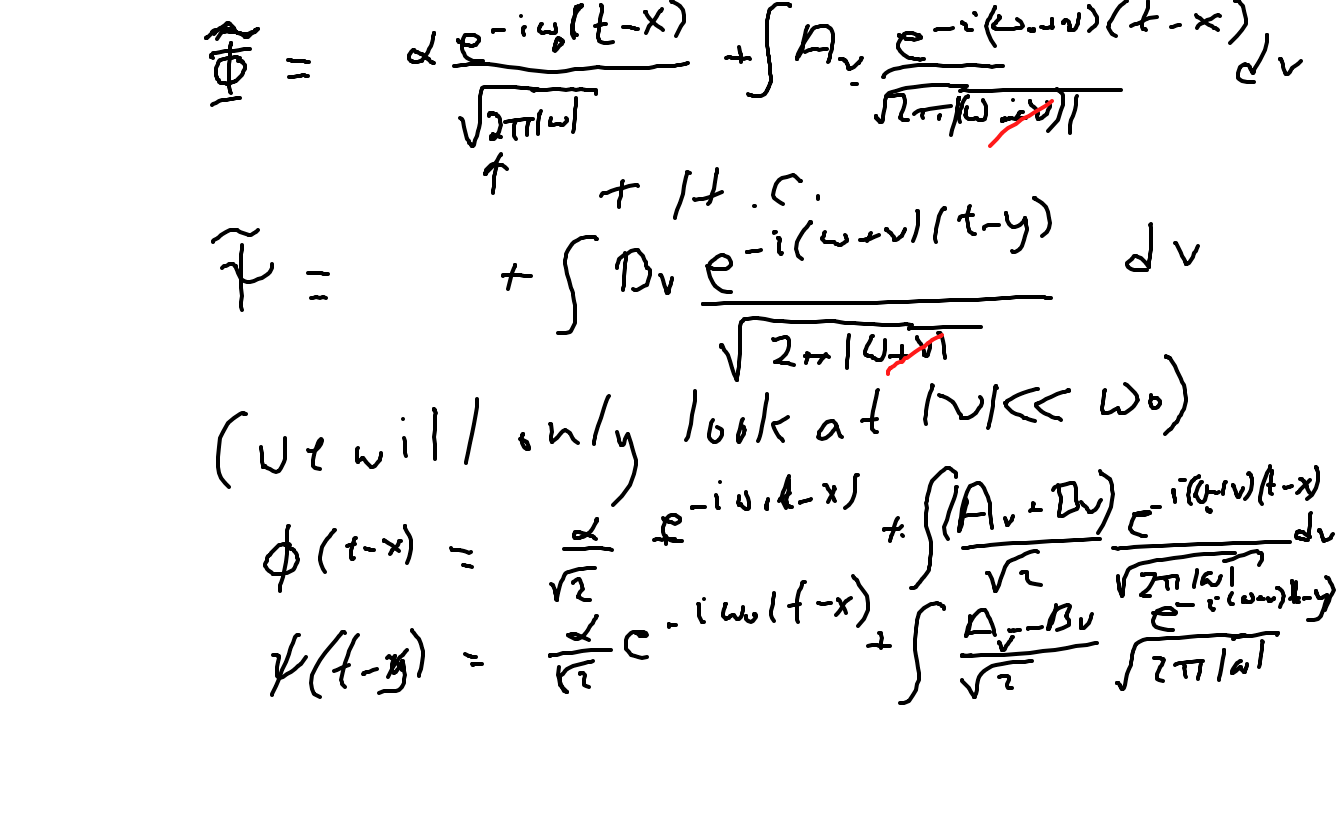 Φ̃ = α e^{-iω₀(t-x)} / √(2π|ω|) + ∫ A_ν e^{-i(ω₀+ν)(t-x)} / √(2π|(ω+ν)|) dν
↑
+ H.C.
ψ̃ = + ∫ B_ν e^{-i(ω+ν)(t-y)} / √(2π|ω+ν|) dν
(we will only look at |ν| << ω₀)
φ(t-x) = α/√2 e^{-iω₀(t-x)} + ∫ (A_ν + B_ν)/√2 e^{-i(ω+ν)(t-x)} / √(2π|ω|) dν
ψ(t-y) = α/√2 e^{-iω₀(t-x)} + ∫ A_ν - B_ν/√2 e^{-i(ω+ν)(t-y)} / √(2π|ω|)